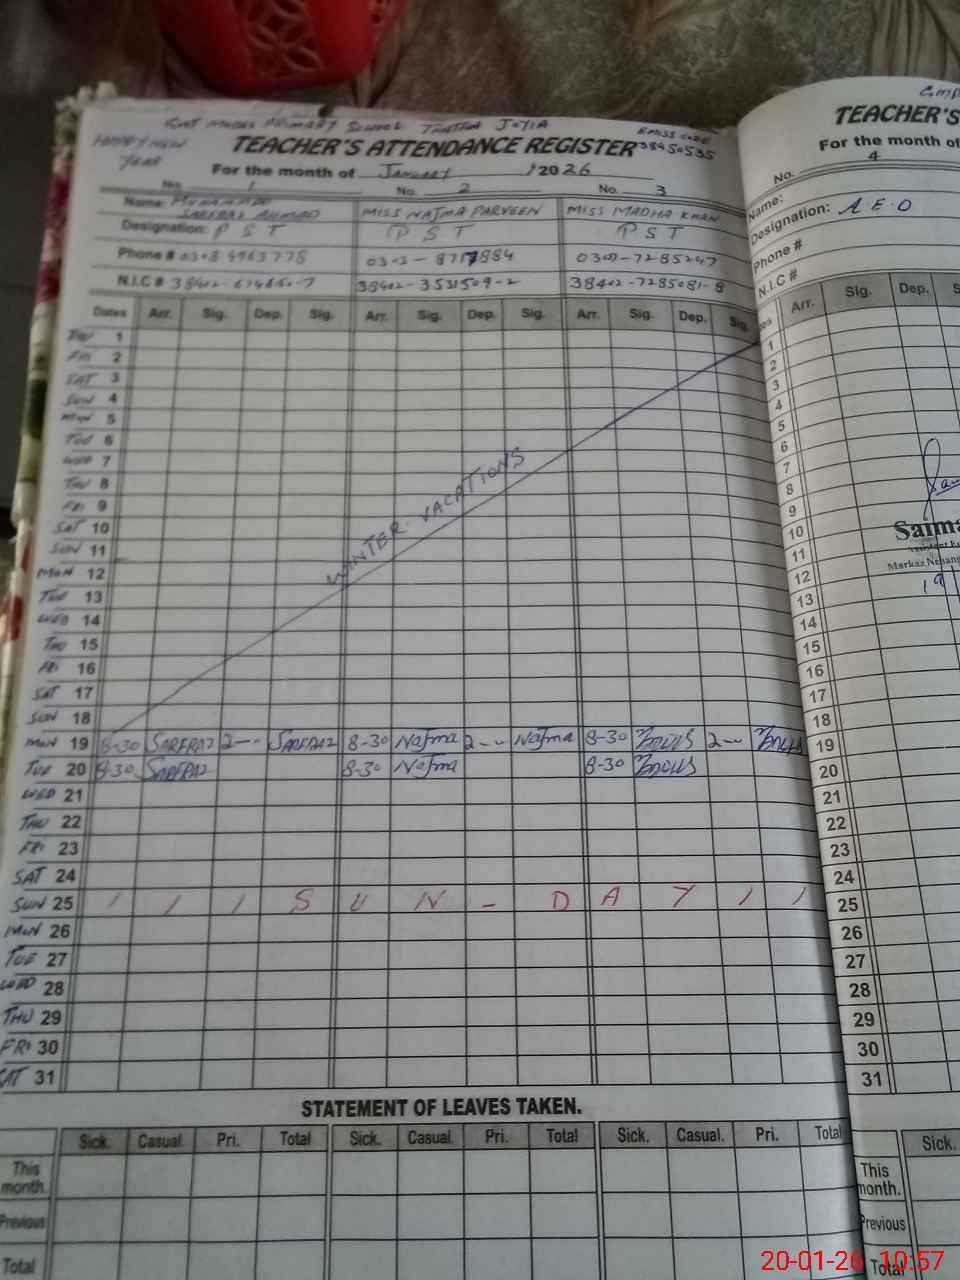 GOVT MODEL PRIMARY SCHOOL THATHA JOYIA
HAPPY NEW YEAR
EMISS CODE
38450535
TEACHER'S ATTENDANCE REGISTER
For the month of JANUARY 2026
No. 1 No. 2 No. 3
Name: MUHAMMAD SARFRAZ AHMAD MISS NAJMA PARVEEN MISS MADHA KHAN
Designation: P S T P S T P S T
Phone #
N.I.C #
Dates Arr. Sig. Dep. Sig. Arr. Sig. Dep. Sig. Arr. Sig. Dep. Sig.
THU 1
FRI 2
SAT 3
SUN 4
MON 5
TUE 6
WED 7
THU 8
FRI 9
SAT 10
SUN 11
MON 12
TUE 13
WED 14
THU 15
FRI 16
SAT 17
SUN 18
WINTER VACATIONS
MON 19 8-30 SARFRAZ 2-- SARFRAZ 8-30 Najma 2-- Najma 8-30 2--
TUE 20 8-30 SARFRAZ 8-30 Najma 8-30
WED 21
THU 22
FRI 23
SAT 24
SUN 25 / / / S U N - D A Y / /
MON 26
TUE 27
WED 28
THU 29
FRI 30
SAT 31
STATEMENT OF LEAVES TAKEN.
Sick. Casual. Pri. Total Sick. Casual. Pri. Total Sick. Casual. Pri. Total
This month.
Previous
Total
TEACHER'S
For the month of
No. 4
Name:
Designation: A E O
Phone #
N.I.C #
Arr. Sig. Dep.
1
2
3
4
5
6
7
8
9
10
11
12
13
14
15
16
17
18
19
20
21
22
23
24
25
26
27
28
29
30
31
Saima
Markaz
19
Sick.
This month.
Previous
Total
20-01-26 10:57